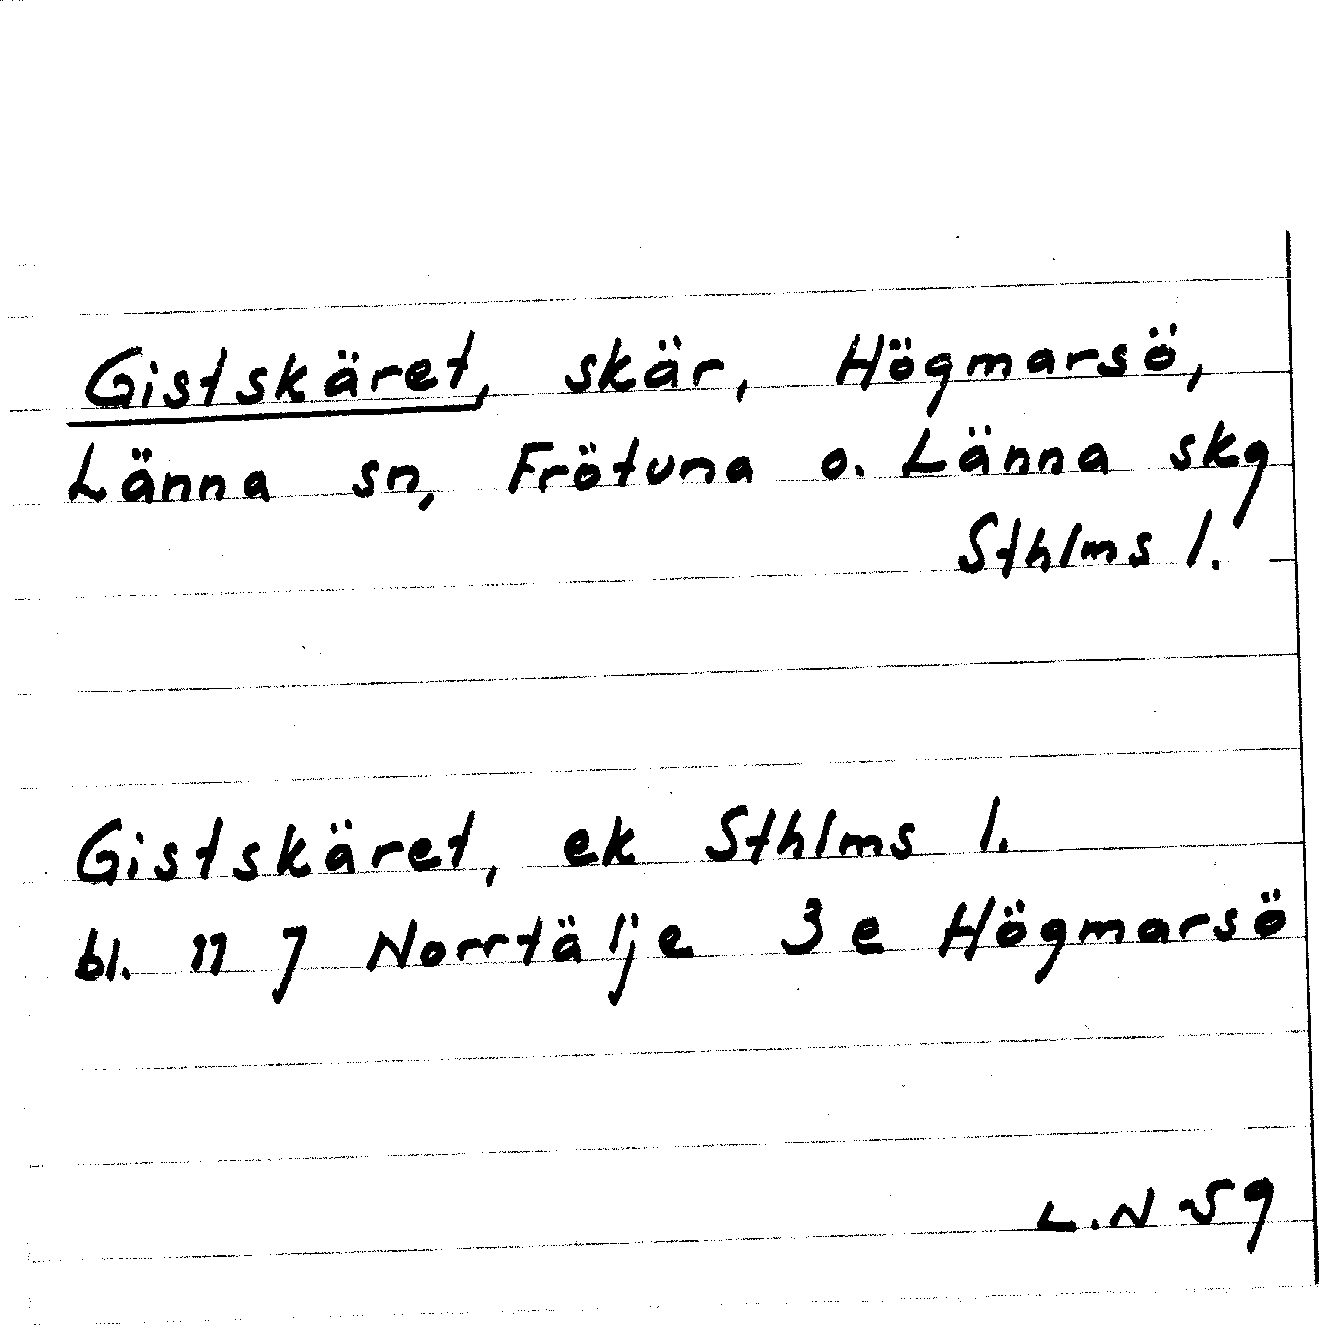 Gistskäret, skär, Högmarsö,
Länna sn, Frötuna o. Länna skg
Sthlms l.
Gistskäret, ek Sthlms l.
bl. 11 J Norrtälje 3 e Högmarsö
L.N 59